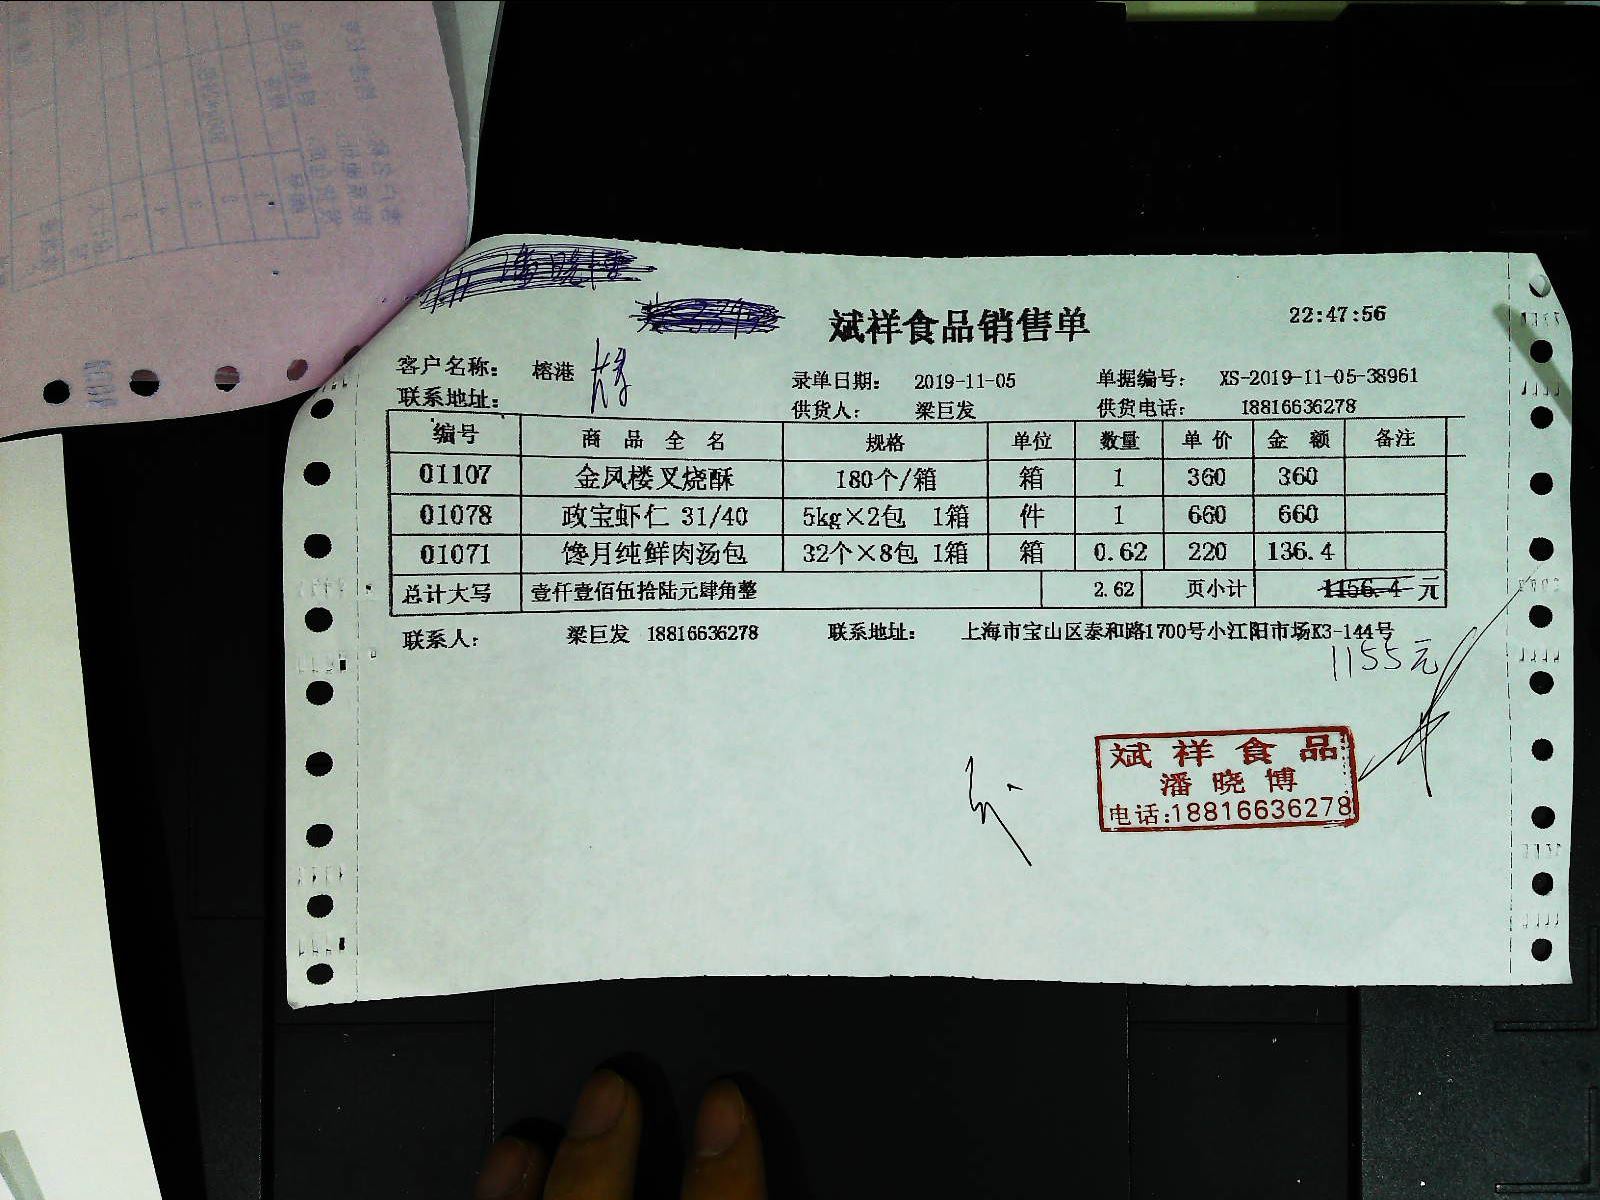 斌祥食品销售单
22:47:56
客户名称： 榕港
录单日期： 2019-11-05 单据编号： XS-2019-11-05-38961
联系地址：
供货人： 梁巨发 供货电话： 18816636278
编号 商品全名 规格 单位 数量 单价 金额 备注
01107 金凤楼叉烧酥 180个/箱 箱 1 360 360
01078 政宝虾仁 31/40 5kg×2包 1箱 件 1 660 660
01071 馋月纯鲜肉汤包 32个×8包 1箱 箱 0.62 220 136.4
总计大写 壹仟壹佰伍拾陆元肆角整 2.62 页小计 1156.4 元
联系人： 梁巨发 18816636278 联系地址： 上海市宝山区泰和路1700号小江阳市场K3-144号
1155元
斌祥食品
潘晓博
电话:18816636278